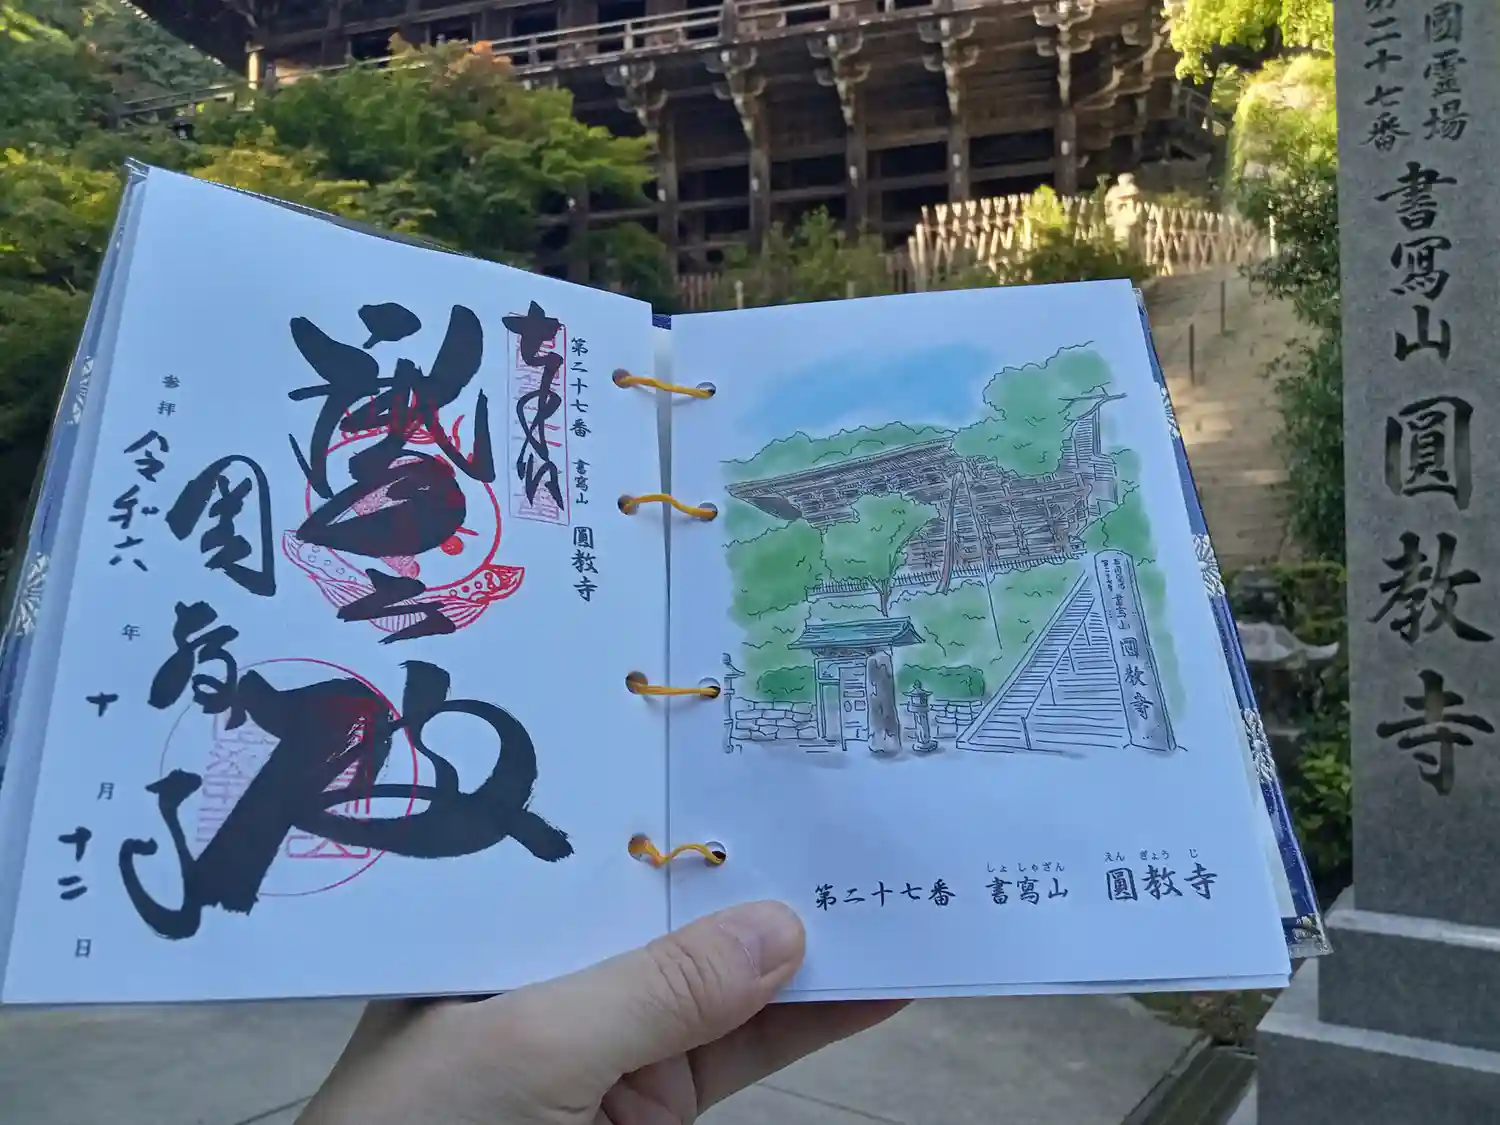 奉拝
第二十七番 書寫山 圓教寺
圓教寺
参拝 令和六年 十月 十二日
國霊場
第二十七番
書寫山 圓教寺
書寫山
圓教寺
しょしゃざん えんぎょうじ
第二十七番 書寫山 圓教寺